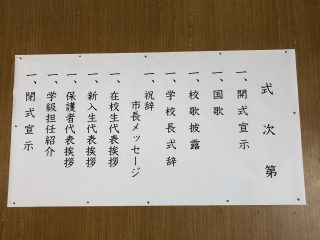 式次第
一、開式宣示
一、国歌
一、校歌披露
一、学校長式辞
一、祝辞
市長メッセージ
一、在校生代表挨拶
一、新入生代表挨拶
一、保護者代表挨拶
一、学級担任紹介
一、閉式宣示